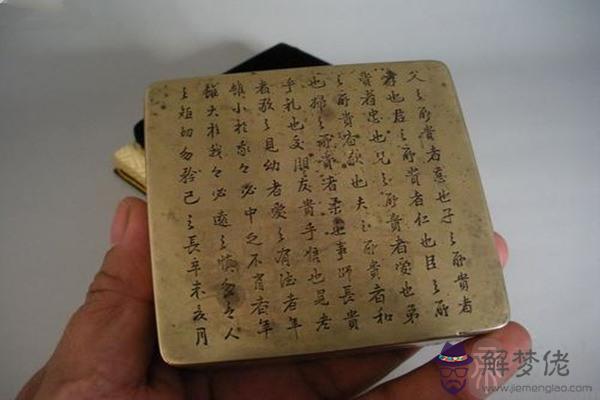 父之所貴者慈也子之所貴者
孝也君之所貴者仁也臣之所
貴者忠也兄之所貴者愛也弟
之所貴者敬也夫之所貴者和
也婦之所貴者柔也事師長貴
乎礼也交朋友貴乎信也見老
者敬之見幼者愛之有德者年
雖小於我々必之不肖者年
雖大於我々必遠之慎勿人
之短切勿矜己之長辛未月
解梦佬
www.jiemenglao.com